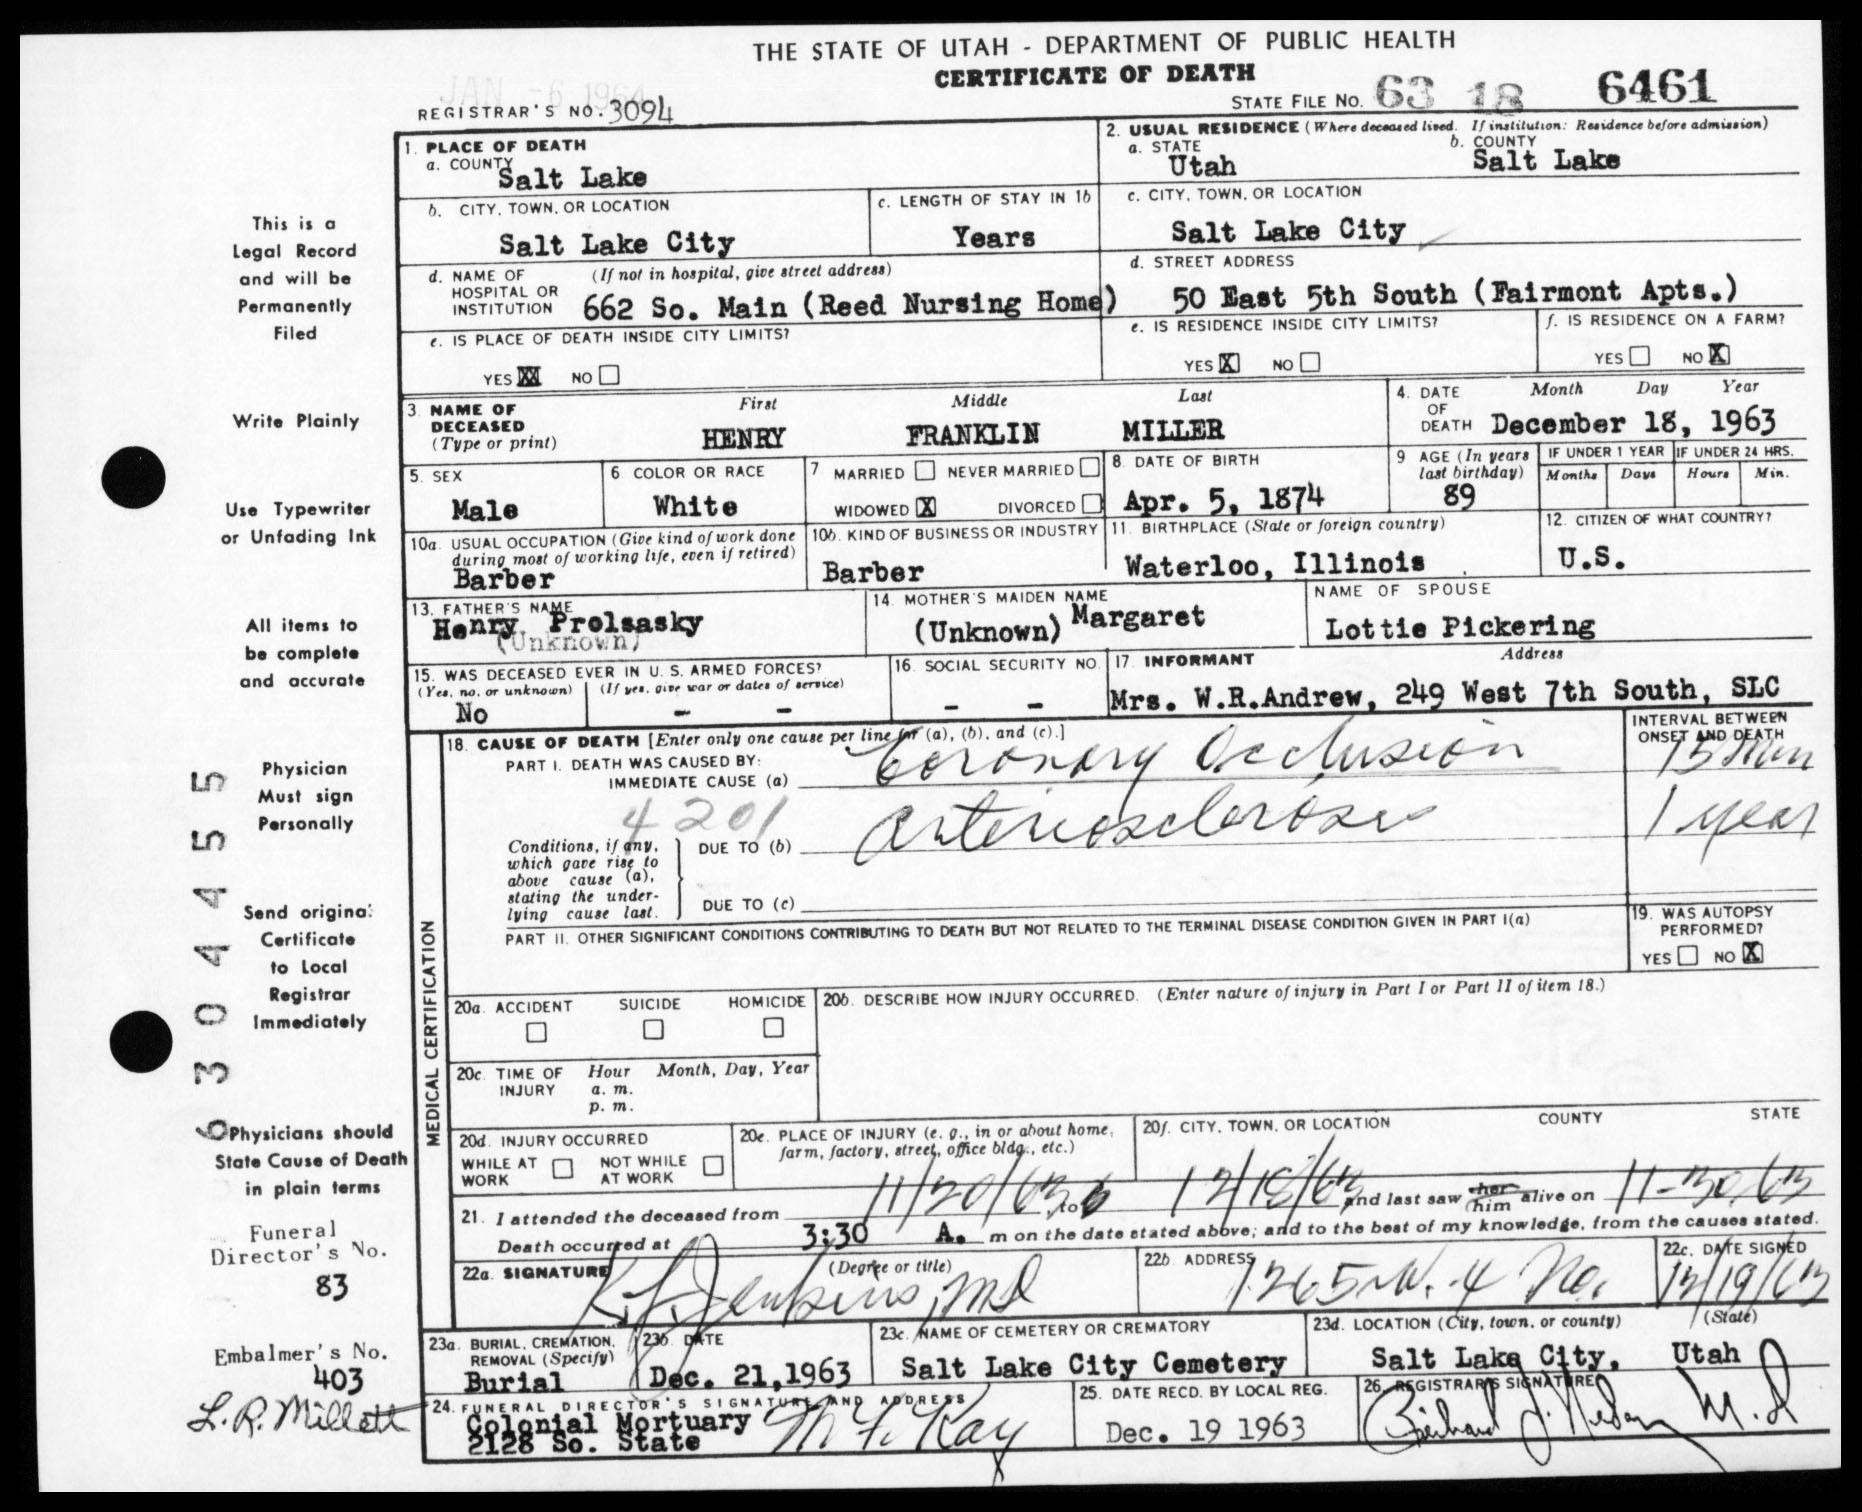 THE STATE OF UTAH - DEPARTMENT OF PUBLIC HEALTH
CERTIFICATE OF DEATH
JAN -6 1964
REGISTRAR'S NO. 3094
STATE FILE NO. 63 18 6461
This is a
Legal Record
and will be
Permanently
Filed
Write Plainly
Use Typewriter
or Unfading Ink
All items to
be complete
and accurate
Physician
Must sign
Personally
Send original
Certificate
to Local
Registrar
Immediately
Physicians should
State Cause of Death
in plain terms
Funeral
Director's No.
83
Embalmer's No.
403
L. R. Millett
6304455
1. PLACE OF DEATH
a. COUNTY
Salt Lake
2. USUAL RESIDENCE (Where deceased lived. If institution: Residence before admission)
a. STATE
Utah
b. COUNTY
Salt Lake
b. CITY, TOWN, OR LOCATION
Salt Lake City
c. LENGTH OF STAY IN 1b
Years
c. CITY, TOWN, OR LOCATION
Salt Lake City
d. NAME OF HOSPITAL OR INSTITUTION (If not in hospital, give street address)
662 So. Main (Reed Nursing Home)
d. STREET ADDRESS
50 East 5th South (Fairmont Apts.)
e. IS PLACE OF DEATH INSIDE CITY LIMITS?
YES XX NO
e. IS RESIDENCE INSIDE CITY LIMITS?
YES X NO
f. IS RESIDENCE ON A FARM?
YES NO X
3. NAME OF DECEASED
(Type or print)
First Middle Last
HENRY FRANKLIN MILLER
4. DATE OF DEATH
Month Day Year
December 18, 1963
5. SEX
Male
6 COLOR OR RACE
White
7 MARRIED NEVER MARRIED
WIDOWED X DIVORCED
8. DATE OF BIRTH
Apr. 5, 1874
9 AGE (In years last birthday)
89
IF UNDER 1 YEAR
Months Days
IF UNDER 24 HRS.
Hours Min.
10a. USUAL OCCUPATION (Give kind of work done during most of working life, even if retired)
Barber
10b. KIND OF BUSINESS OR INDUSTRY
Barber
11. BIRTHPLACE (State or foreign country)
Waterloo, Illinois
12. CITIZEN OF WHAT COUNTRY?
U.S.
13. FATHER'S NAME
Henry Prolsasky
(Unknown)
14. MOTHER'S MAIDEN NAME
(Unknown) Margaret
NAME OF SPOUSE
Lottie Pickering
15. WAS DECEASED EVER IN U. S. ARMED FORCES?
(Yes, no, or unknown) (If yes, give war or dates of service)
No - -
16. SOCIAL SECURITY NO.
- -
17. INFORMANT Address
Mrs. W.R.Andrew, 249 West 7th South, SLC
MEDICAL CERTIFICATION
18. CAUSE OF DEATH [Enter only one cause per line for (a), (b), and (c).]
INTERVAL BETWEEN
ONSET AND DEATH
PART I. DEATH WAS CAUSED BY:
IMMEDIATE CAUSE (a) Coronary Occlusion 15 Min
4201
Conditions, if any,
which gave rise to
above cause (a),
stating the under-
lying cause last.
DUE TO (b) Arteriosclerosis 1 year
DUE TO (c)
PART II. OTHER SIGNIFICANT CONDITIONS CONTRIBUTING TO DEATH BUT NOT RELATED TO THE TERMINAL DISEASE CONDITION GIVEN IN PART I(a)
19. WAS AUTOPSY
PERFORMED?
YES NO X
20a. ACCIDENT SUICIDE HOMICIDE
20b. DESCRIBE HOW INJURY OCCURRED. (Enter nature of injury in Part I or Part II of item 18.)
20c. TIME OF INJURY
Hour Month, Day, Year
a. m.
p. m.
20d. INJURY OCCURRED
WHILE AT WORK NOT WHILE AT WORK
20e. PLACE OF INJURY (e. g., in or about home, farm, factory, street, office bldg., etc.)
20f. CITY, TOWN, OR LOCATION COUNTY STATE
21. I attended the deceased from 11/20/63, to 12/18/63 and last saw her him alive on 11-30/63
Death occurred at 3:30 A. m on the date stated above; and to the best of my knowledge, from the causes stated.
22a. SIGNATURE (Degree or title)
Jenkins, MD
22b. ADDRESS
1265 W. 4 No.
22c. DATE SIGNED
12/19/63
23a. BURIAL, CREMATION, REMOVAL (Specify)
Burial
23b. DATE
Dec. 21,1963
23c. NAME OF CEMETERY OR CREMATORY
Salt Lake City Cemetery
23d. LOCATION (City, town, or county) (State)
Salt Lake City, Utah
24. FUNERAL DIRECTOR'S SIGNATURE AND ADDRESS
Colonial Mortuary
2128 So. State
25. DATE RECD. BY LOCAL REG.
Dec. 19 1963
26. REGISTRAR'S SIGNATURE
M.D